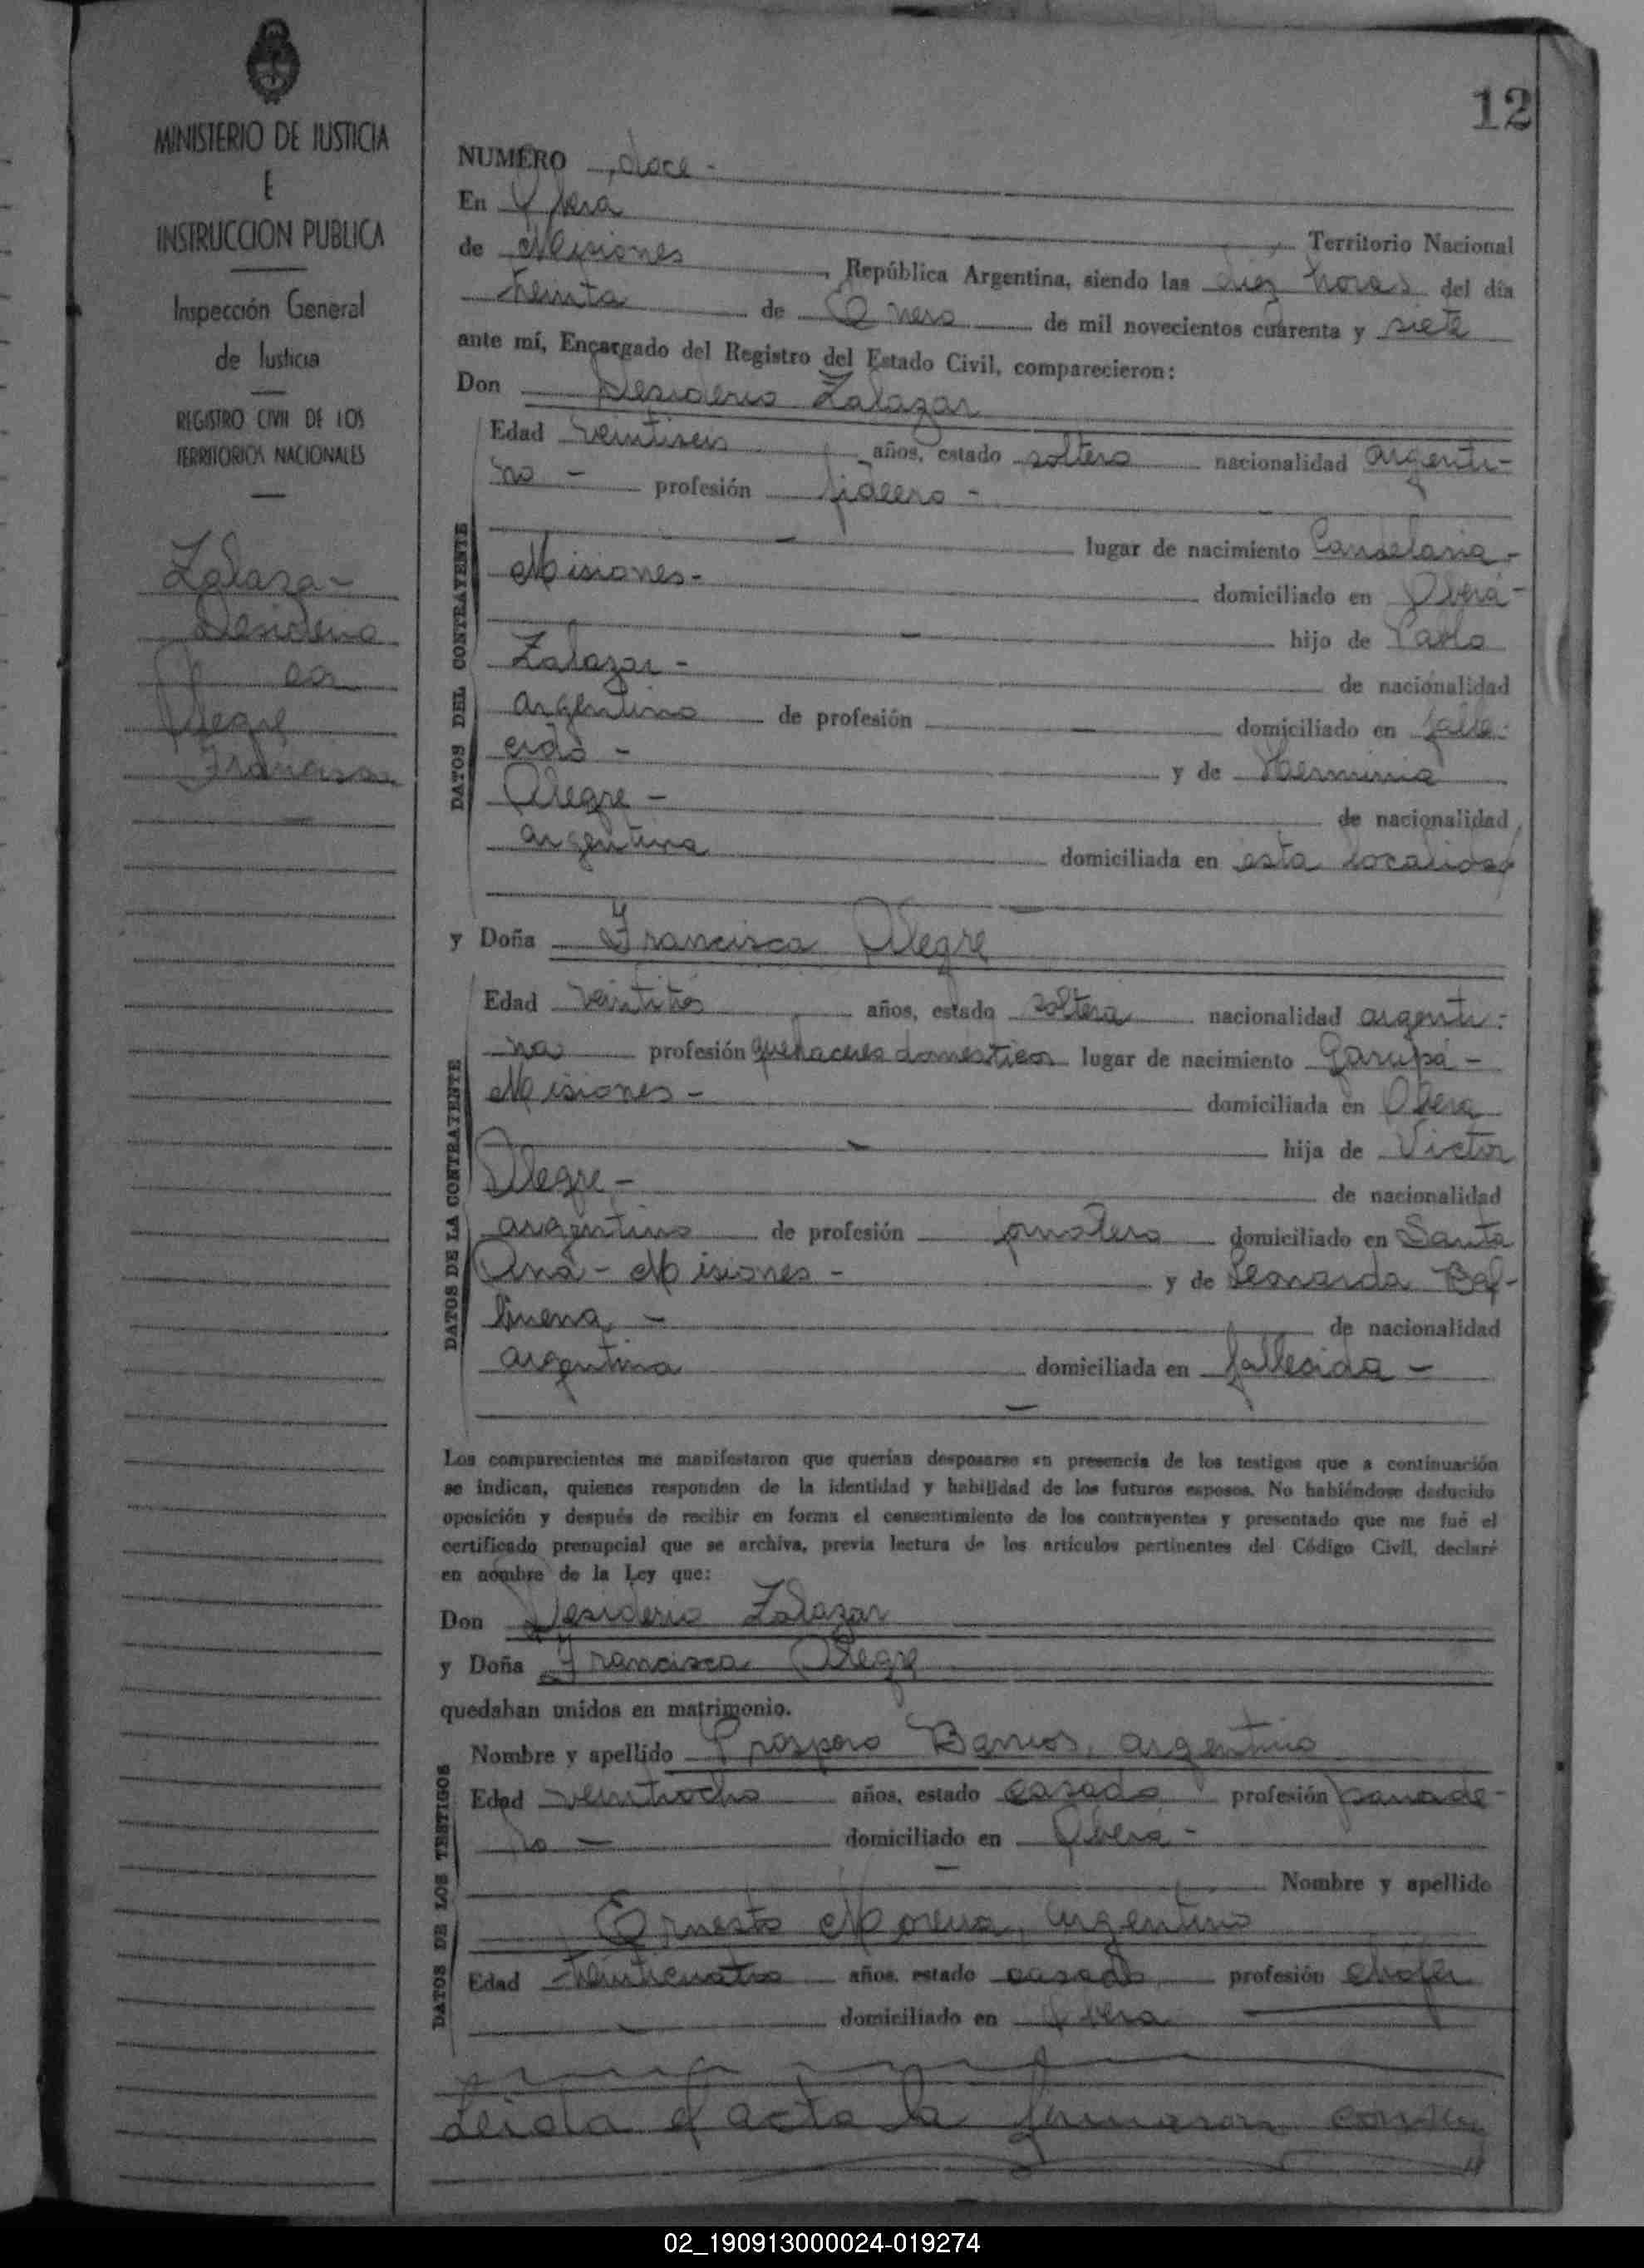 MINISTERIO DE JUSTICIA
E
INSTRUCCION PUBLICA
Inspección General
de Justicia
REGISTRO CIVIL DE LOS
TERRITORIOS NACIONALES
Zalazar
Desiderio
con
Alegre
Francisca
12
NUMERO doce -
En Oberá
de Misiones Territorio Nacional
República Argentina, siendo las diez horas del día
treinta de Enero de mil novecientos cuarenta y siete
ante mí, Encargado del Registro del Estado Civil, comparecieron:
Don Desiderio Zalazar
DATOS DEL CONTRAYENTE
Edad veintiseis años, estado soltero nacionalidad argenti-
no - profesión -
lugar de nacimiento Candelaria -
Misiones - domiciliado en Oberá -
hijo de Pablo
Zalazar - de nacionalidad
argentino de profesión — domiciliado en falle-
cido - y de Herminia
Alegre - de nacionalidad
argentina domiciliada en esta localidad
y Doña Francisca Alegre
DATOS DE LA CONTRAYENTE
Edad veintitres años, estado soltera nacionalidad argenti-
na profesión quehaceres domesticos lugar de nacimiento Garupá -
Misiones - domiciliada en Oberá
hija de Victor
Alegre - de nacionalidad
argentino de profesión jornalero domiciliado en Santa
Ana - Misiones - y de Leonarda Bal-
buena - de nacionalidad
argentina domiciliada en fallesida -
Los comparecientes me manifestaron que querían desposarse en presencia de los testigos que a continuación
se indican, quienes responden de la identidad y habilidad de los futuros esposos. No habiéndose deducido
oposición y después de recibir en forma el consentimiento de los contrayentes y presentado que me fué el
certificado prenupcial que se archiva, previa lectura de los artículos pertinentes del Código Civil, declaré
en nombre de la Ley que:
Don Desiderio Zalazar
y Doña Francisca Alegre
quedaban unidos en matrimonio.
DATOS DE LOS TESTIGOS
Nombre y apellido Prospero Barrios, argentino
Edad veintiocho años, estado casado profesión panade-
ro - domiciliado en Oberá -
Nombre y apellido
Ernesto Moreira, argentino
Edad treinticuatro años, estado casado profesión chofer
domiciliado en Oberá
Leida el acta la firmaron
02_190913000024-019274